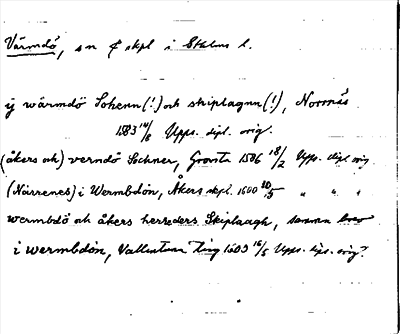 Värmdö, sn o skpl i Sthlms l.
ij wärmdö Sohenn(!) och skiplagnn(!), Norrnäs
1583 14/6 Upps. dipl. orig.
(åkers och) verndö Sochner, Granta 1586 18/2 Upps. dipl orig
(Närrenes) i Wermbdön, Åkers skpl. 1600 30/5 " " "
wermbdö och åkers herreders Skiplaagh, samma brev
i wermbdön, Vallentuna ting 1603 16/5 Upps. dipl. orig?